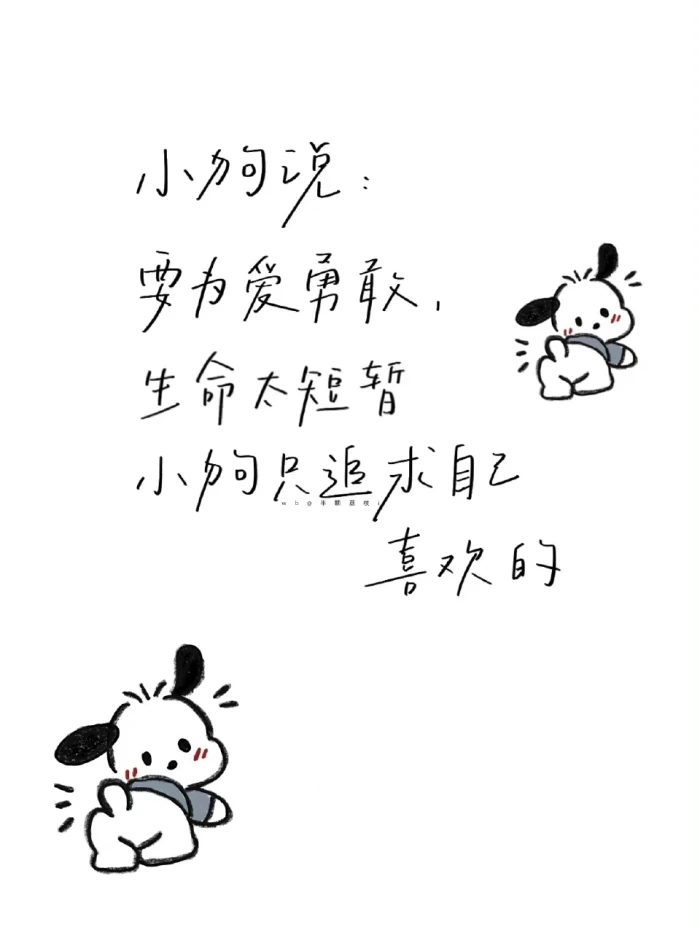 小狗说：
要为爱勇敢，
生命太短暂
小狗只追求自己
喜欢的